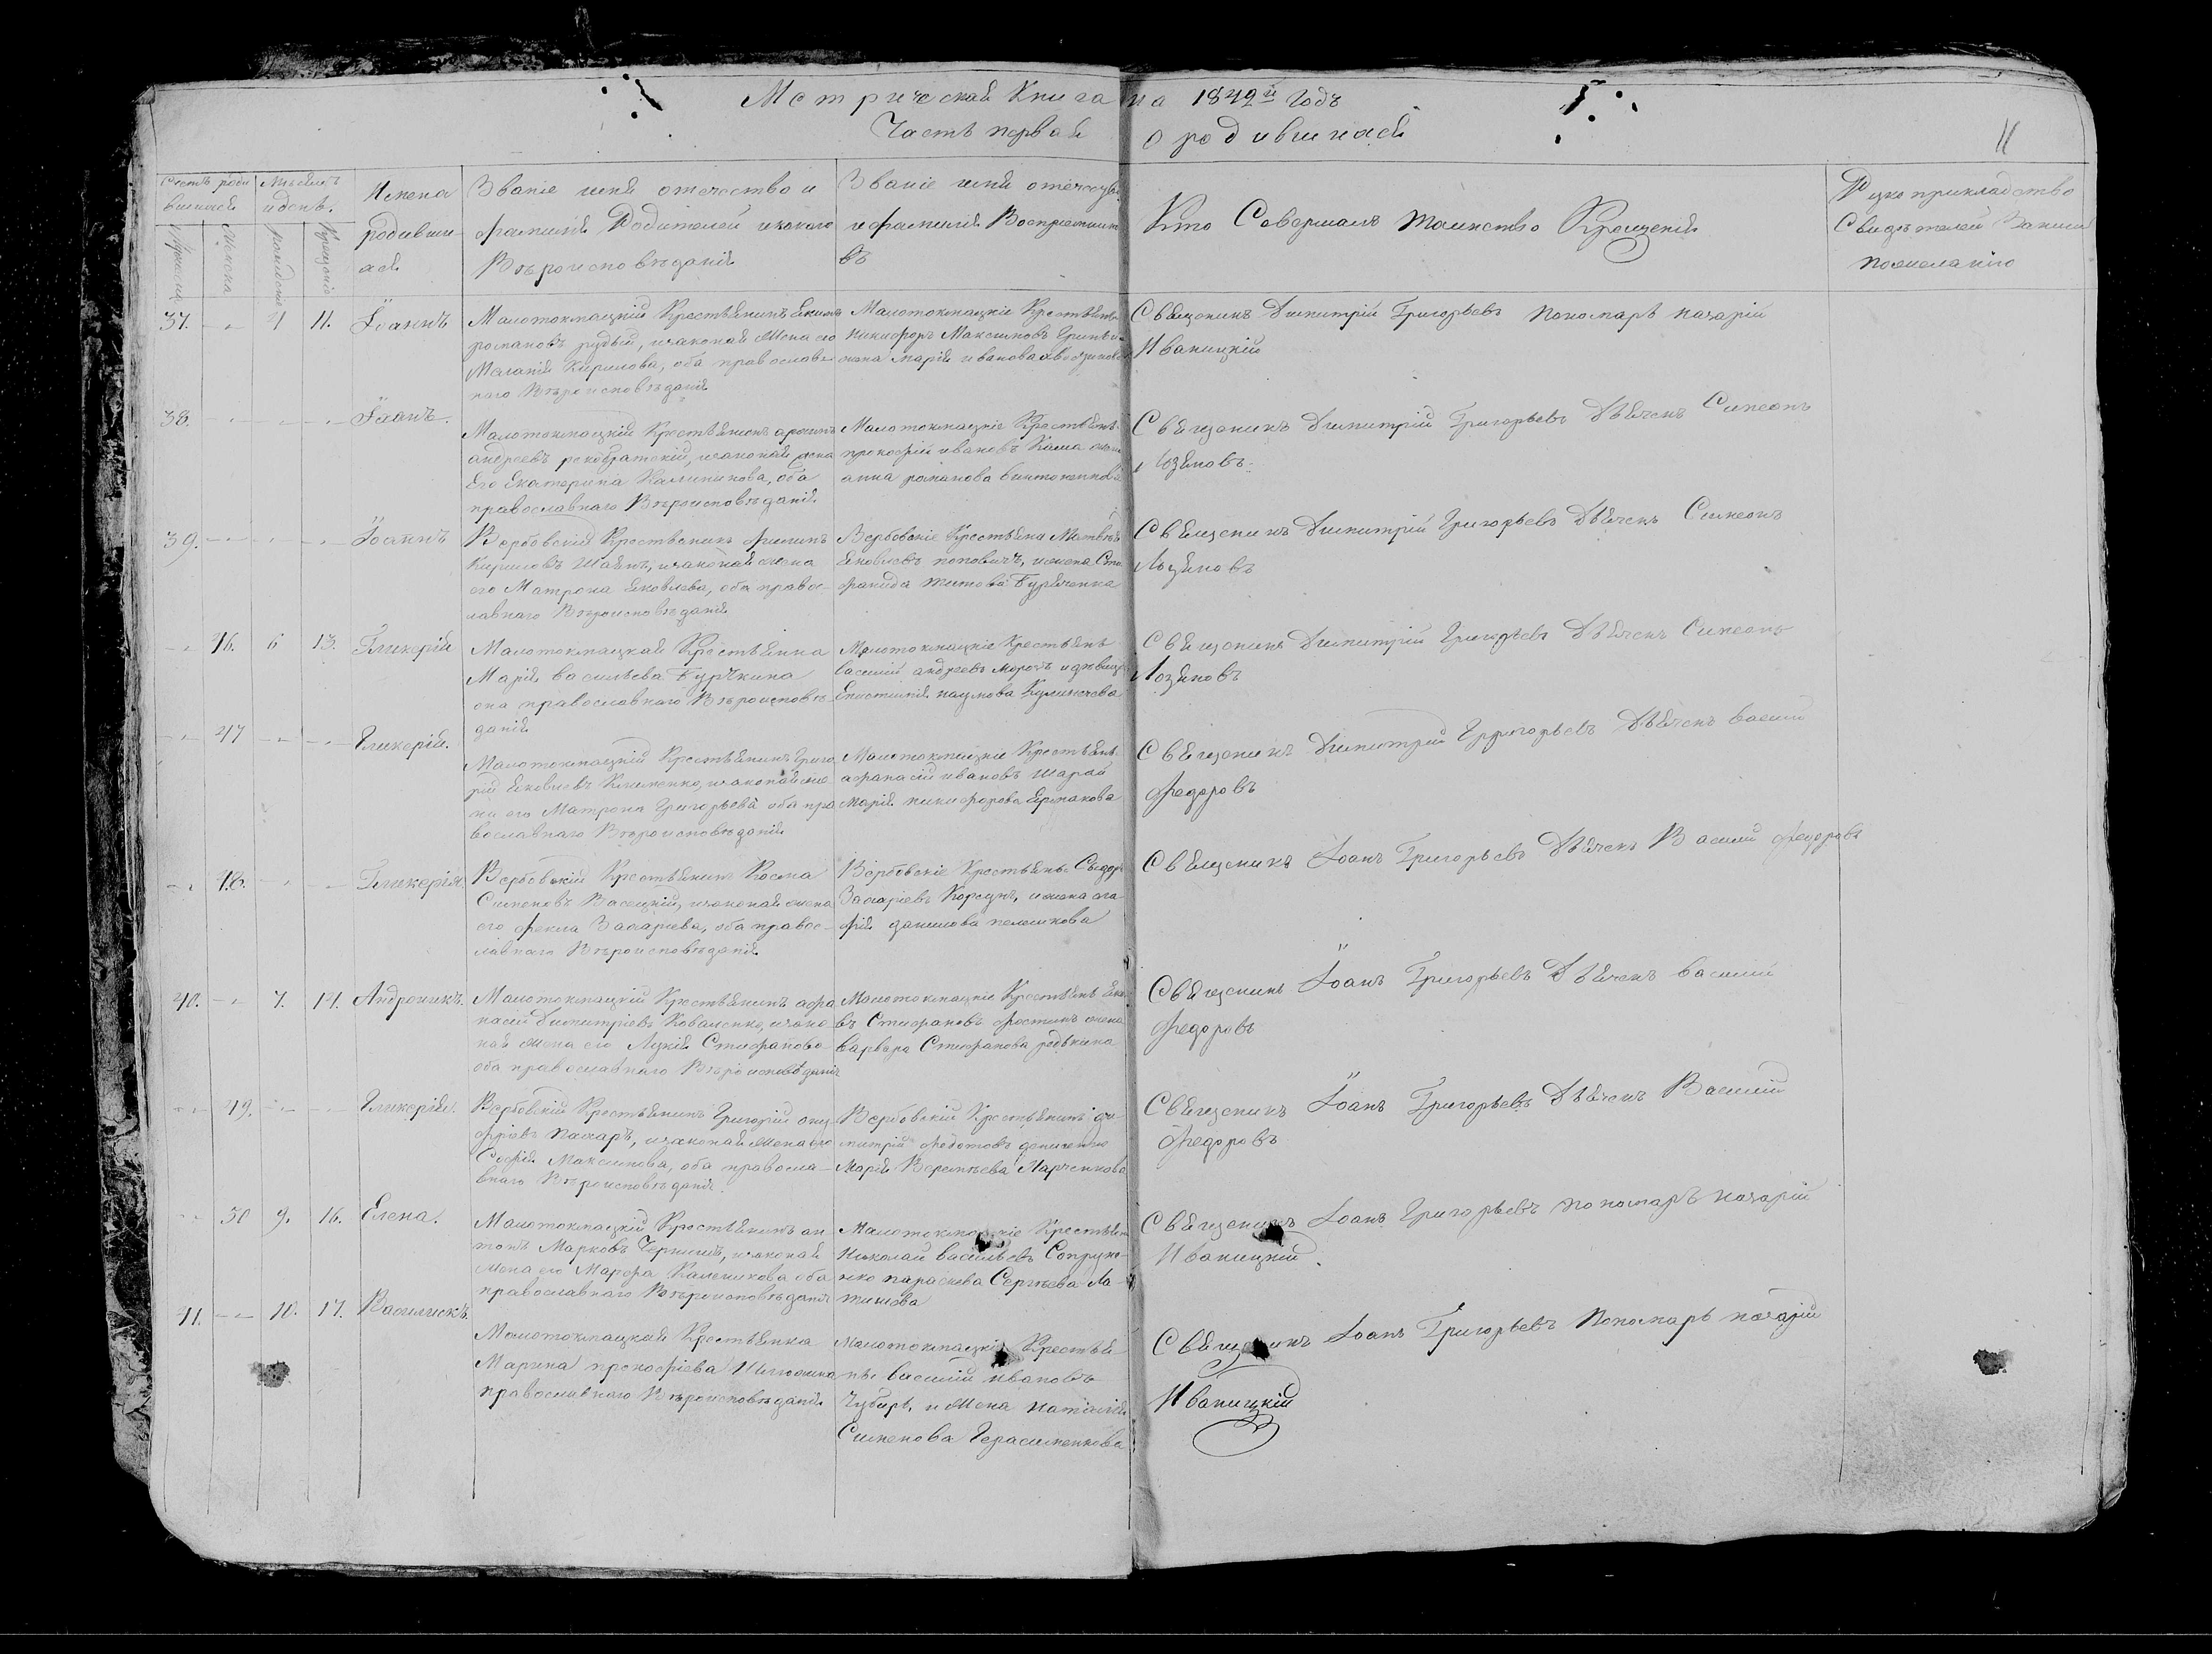 Метрическая Книга на 1842й Годъ
Часть первая о родившихся
11
Счетъ роди
вшихся
Мѣсяцъ
и день.
Мужеска
Женска
рожденія
Крещенія
Имена
родивши
хся
Званіе имя отечество и
фамилія Родителей и какого
Вѣроисповѣданія
Званіе имя отечество
и фамилія Воспріемнико
въ
Кто Совершалъ таинство Крещенія
Рукоприкладство
Свидѣтелей Записи
по желанію
37. 4 11. Іоаннъ
Малотокмацкій Крестьянинъ Екимъ
романовъ рудый, изаконая Жена его
Меланія Кирилова, оба православ
наго Вѣроисповѣданія
Малотокмацкіе Крестьяне
Никифоръ Максимовъ
жена марія иванова
Священникъ Димитрій Григорьевъ пономарь назарій
Иваницкій
38. Іоанъ.
Малотокмацкій Крестьянинъ
андреевъ изаконая жена
Его Екатерина Калиникова, оба
православнаго Вѣроисповѣданія
Малотокмацкіе Крестьяне
прокофій ивановъ Каша жена
анна романова
Священникъ Димитрій Григорьевъ Дьячекъ Симеонъ
Лозяновъ.
39. Іоаннъ
Вербовскій Крестьянинъ Филипъ
Кириловъ изаконая жена
его Матрона Яковлева, оба правос-
лавнаго Вѣроисповѣданія
Вербовскіе Крестьяне Матвѣй
Яковлевъ поповичъ, и жена Сте
фанида титова Буряченка
Священникъ Димитрій Григорьевъ Дьячекъ Симеонъ
Лозяновъ
46. 6 13. Гликерія
Малотокмацкая Крестьянка
Марія васильева Бурѣкина
она православнаго Вѣроисповѣ-
данія
Малотокмацкіе Крестьяне
василій андреевъ морозъ и дѣвица
Епистимія наумова
Священникъ Димитрій Григорьевъ Дьячекъ Симеонъ
Лозяновъ
47 Гликерія.
Малотокмацкій Крестьянинъ Григо
рій Яковлевъ Клименко, изаконая же
на его Матрона Григорьева оба пра
вославнаго Вѣроисповѣданія
Малотокмацкіе Крестьяне
афанасій ивановъ Шарай
Марія никифорова Ермакова
Священникъ Димитрій Григорьевъ Дьячекъ василій
Федоровъ
48. Гликерія
Вербовскій Крестьянинъ Косма
Симеоновъ Васецкій, изаконая жена
его Фекла Захаріева, оба правос-
лавнаго Вѣроисповѣданія
Вербовскіе Крестьяне Сидоръ
Захаріевъ Корсунъ, и жена ага
фія данилова
Священникъ Іоанъ Григорьевъ Дьячекъ Василій Федоровъ
40. 7. 14. Андроникъ.
Малотокмацкій Крестьянинъ афа
насій Димитріевъ Коваленко, изако
ная жена его Лукія Стефанова
оба православнаго Вѣроисповѣданія
Малотокмацкіе Крестьяне
въ Стефановъ жена
варвара Стефанова редькина
Священникъ Іоанъ Григорьевъ Дьячекъ василій
Федоровъ
49. Гликерія.
Вербовскій Крестьянинъ Григорій ону
фріевъ Пахарь, изаконая Жена его
Софія Максимова, оба правосла-
внаго Вѣроисповѣданія.
Вербовскій Крестьянинъ ди
митрій Федотовъ
Марія Марченкова
Священникъ Іоанъ Григорьевъ Дьячекъ Василій
Федоровъ
50 9. 16. Елена.
Малотокмацкій Крестьянинъ ан
тонъ Марковъ изаконая
жена его Марфа Калиникова оба
православнаго Вѣроисповѣданія
Малотокмацкіе Крестьяне
Николай васильевъ Супруно-
нко параскева Сергѣева
Священникъ Іоанъ Григорьевъ пономарь назарій
Иваницкій.
41. 10. 17. Василискъ.
Малотокмацкая Крестьянка
Марина прокофіева
православнаго Вѣроисповѣданія
Малотокмацкіе Крестья
не василій ивановъ
Чубаръ, и Жена наталія
Сименова Герасименкова
Священникъ Іоанъ Григорьевъ Пономарь назарій
Иваницкій